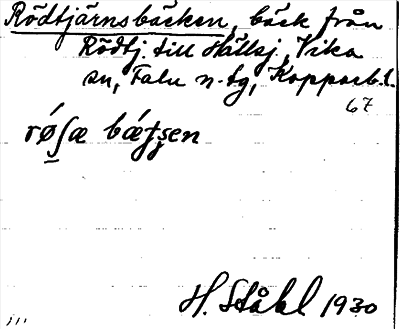 Rödtjärnsbäcken, bäck från
Rödtj. till Hällsj, Vika
sn, Falu n. tg, Kopparb. l.
67
H. Ståhl 1930